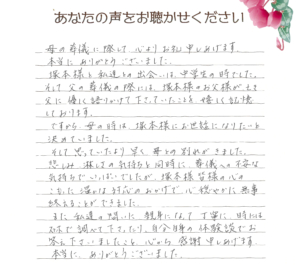 あなたの声をお聴かせください
母の葬儀に際して心よりお礼申しあげます。
本当にありがとうございました。
塚本様と私達との出会いは、中学生の時でした。
そして父の葬儀の際には、塚本様のお父様がそっと
父に優しく語りかけて下さっていたことを嬉しく記憶
しております。
ですから母の時は、塚本様にお世話になりたいと
決めていました。
そして思っていたより早く母との別れがきました。
悲しみ、淋しさの気持ちと同時に、葬儀への不安な
気持ちでいっぱいでしたが、塚本様皆様の心の
こもった温かな対応のおかげで、心穏やかに無事
終えることができました。
また私達の想いに親身になって丁寧に、時には
調べて下さったり、自分自身の体験談でお
答え下さいましたこと、心から感謝申しあげます。
本当に、ありがとうございました。